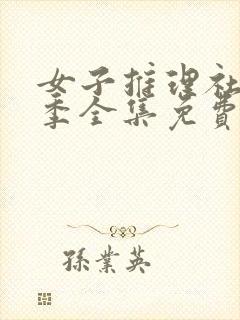 女子推理社
季全集免費
孫業英